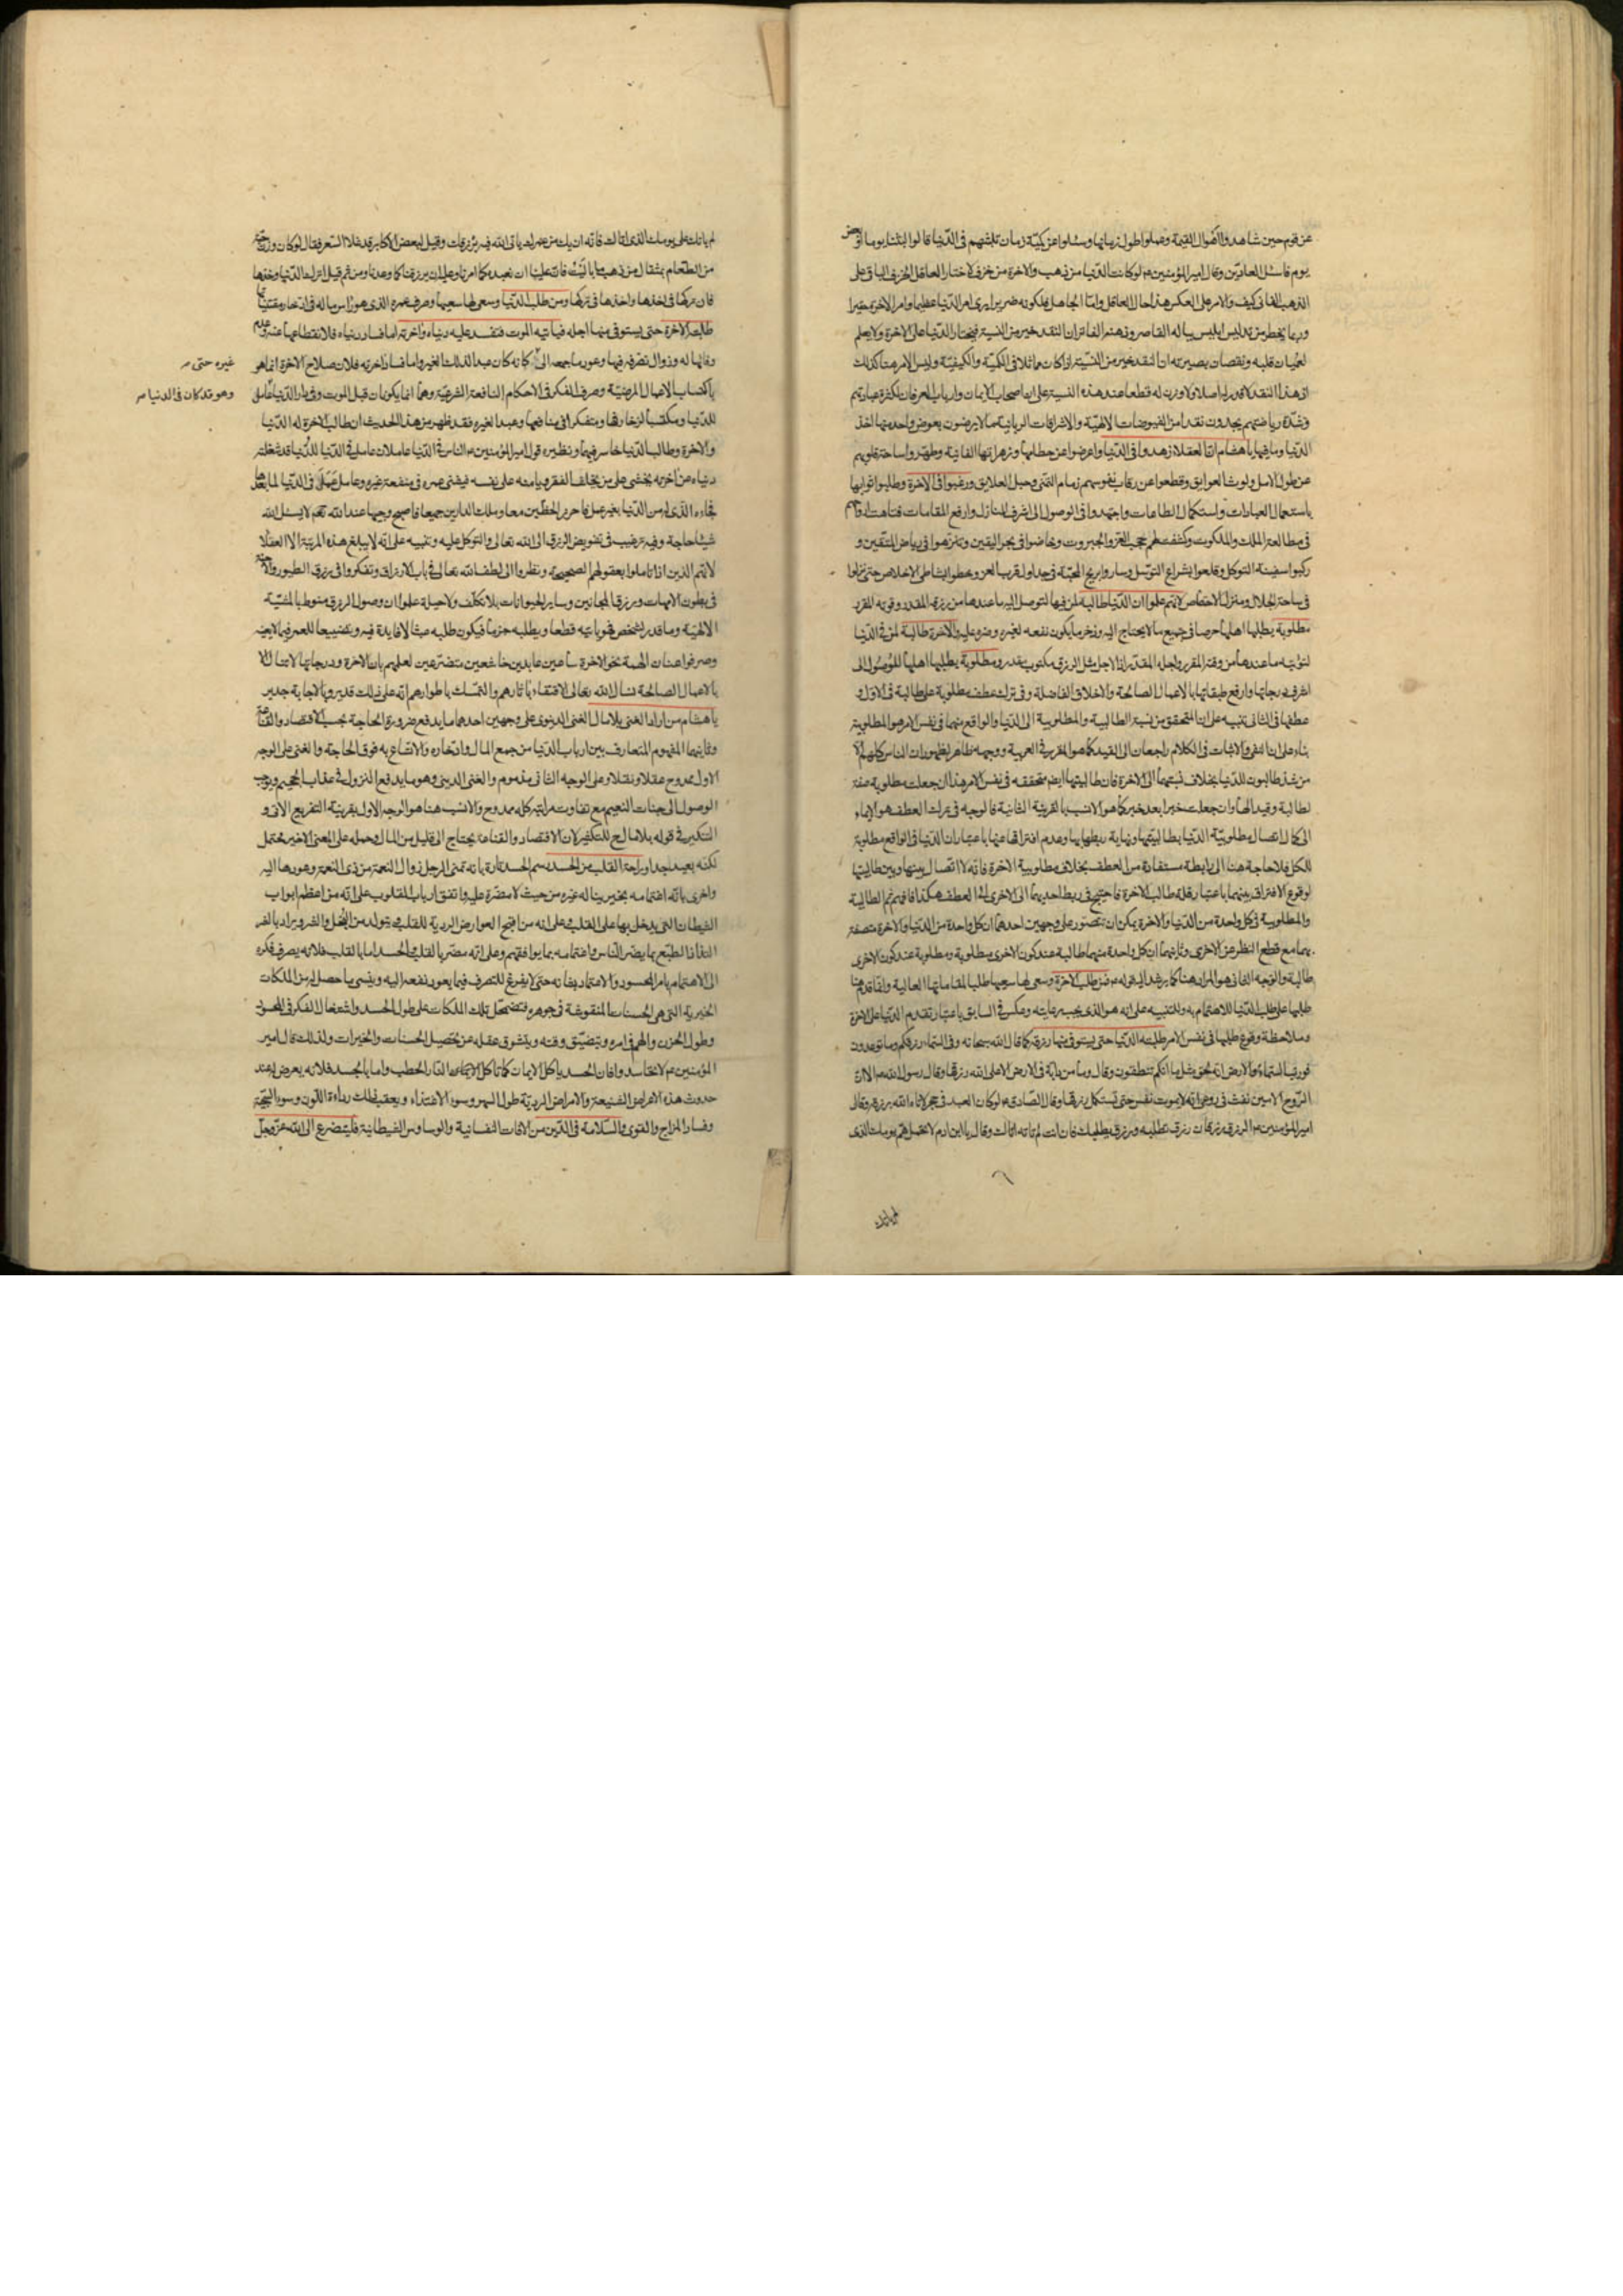 عن قوم حين شاهدوا اهوال القيمة وعملوا طول زمانها وسئلوا عن كمية زمان تلبثهم فى الدّنيا قالوا لبثنا يوما او بعض
يوم فاسئل العادّين وقال امير المؤمنين ع لو كانت الدّنيا من ذهب والاخرة من خزف لاختار العاقل الخزف الباقى على
الذهب الفانى كيف والامر على العكس هذا حال العاقل وامّا الجاهل فلكونه ضريرا يرى امر الدّنيا عظيما وامر الاخرة حقيرا
وربما يخطر من تدليس ابليس بباله القاصر وذهنه الفاتر ان النقد خير من النسية فيختار الدّنيا على الاخرة ولا يعلم
لعميان قلبه ونقصان بصيرته ان النقد خير من النّسية اذا كان مماثلا فى الكميّة والكيفيّة وليس الامر هنا كذلك
اذ هذا النقد لا قدر له اصلا ولا وزن له قطعا عند هذه النسية على ان اصحاب الايمان وارباب العرفان لكثرة عبادتهم
وشدّة رياضتهم يجدون نقدا من الفيوضات الالهيّة والاشراقات الربانية ما لا يرضون بعوض واحد منها اخذ
الدّنيا وما فيها يا هشام انّ العقلاء زهدوا فى الدّنيا واعرضوا عن حطامها وزهراتها الفانية وطهّروا ساحة قلوبهم
عن طول الامل ولوث العوايق وقطعوا عن رقاب نفوسهم زمام التمنّى وحبل العلايق ورغبوا فى الاخرة وطلبوا ثوابها
باستعمال العبادات واستكمال الطاعات واجتهدوا فى الوصول الى اشرف المنازل وارفع المقامات فتاهت
فى مطالعة الملك والملكوت وكشفت لهم حجب العزّ والجبروت وخاضوا فى بحر اليقين وتنزهوا فى رياض المتّقين و
ركبوا سفينة التوكل وقلعوا بشراع التوسّل وساروا بريح المحبّة فى جداول قرب العز وحطوا بشاطى الاخلاص حتى نزلوا
فى ساحة الجلال ومنزل الاختصاص لانّهم علموا ان الدّنيا طالبة لمن فيها لتوصل اليه ما عندها من رزقه المقدر وقوته المقرر
مطلوبة يطلبها اهلها حرصا فى جميع ما لا يحتاج اليه وذخر ما يكون نفعه لغيره وضره عليه والاخرة طالبة لمن فى الدّنيا
لتوتيه ما عندها من وقته المقرر واجله المقدّر اذ الاجل مثل الرزق مكتوب مقدر ومطلوبة يطلبها اهلها للوصول الى
اشرف درجاتها وارفع طبقاتها بالاعمال الصالحة والاخلاق الفاضلة وفى ترك عطف مطلوبة على طالبة فى الاوّل و
عطفها فى الثانى تنبيه على ان المتحقق من نسبة الطالبية والمطلوبية الى الدّنيا والواقع منهما فى نفس الامر هو المطلوبية
بناء على ان النفى والاثبات فى الكلام راجعان الى القيد كما هو المقرر فى العربية ووجهه ظاهر لظهور ان الناس كلهم الّا
من شذ طالبون للدّنيا بخلاف نسبتهما الى الاخرة فان طالبيتها ايضا متحققه فى نفس الامر هذا ان جعلت مطلوبة صفة
لطالبة وقيدا لها وان جعلت خبرا بعد خبر كما هو الانسب بالقرينة الثانية فالوجه فى ترك العطف هو الايماء
الى كمال اتصال مطلوبيّة الدّنيا بطالبيتها ونهاية ربطها بها وعدم افتراقها عنها باعتبار ان الدّنيا فى الواقع مطلوبة
للكل فلا حاجة هنا الى رابطة مستفادة من العطف بخلاف مطلوبية الاخرة فانّه لا اتصال بينها وبين طالبيتها
لوقوع الافتراق بينهما باعتبار قلة طالب الاخرة فاحتيج فى ربط احديهما الى الاخرى الى العطف هكذا فافهم ثم الطالبية
والمطلوبية فى كل واحدة من الدّنيا والاخرة يمكن ان تتصوّر على وجهين احدهما ان كل واحدة من الدّنيا والاخرة متصفة
بهما مع قطع النظر عن الاخرى وثانيهما ان كل واحدة منهما طالبة عند كون الاخرى مطلوبة ومطلوبة عند كون الاخرى
طالبة والوجه الثانى هو المراد هنا كما يرشد اليه قوله ع فمن طلب الاخرة وسعى لها سعيها طلبا لمقاماتها العالية وانما قدم هنا
طلبها على طلب الدّنيا للاهتمام به وللتنبيه على انه هو الذى يجب رعايته وعكس فى السابق باعتبار تقدم الدّنيا على الاخرة
وملاحظة وقوع طلبها فى نفس الامر طلبته الدّنيا حتى يستوفى منها رزقه كما قال الله سبحانه وفى السّماء رزقكم وما توعدون
فوربّ السّماء والارض انه لحق مثل ما انكم تنطقون وقال وما من دابّة فى الارض الا على الله رزقها وقال رسول الله ص الا ان
الرّوح الامين نفث فى روعى انّه لا يموت نفس حتى تستكمل رزقها وقال الصّادق ع لو كان العبد فى جحر لاتاه الله برزقه وقال
امير المؤمنين ع الرزق رزقان رزق تطلبه ورزق يطلبك فان انت لم تاته اتاك وقال يا ابن ادم لا تحمل همّ يومك الذى
لم ياتك
لم ياتك على يومك الذى اتاك فانّه ان يك من عمرك ياتى الله فيه برزقك وقيل لبعض الاكابر قد غلا السّعر فقال لو كان وزن حبّة
من الطّعام بمثقال من ذهب ما باليت فان علينا ان نعبده كما امرنا وعليه ان يرزقنا كما وعدنا ومن ثم قيل اترك الدّنيا وخذها
فان تركها فى اخذها واخذها فى تركها ومن طلب الدّنيا وسعى لها سعيها وصرف عمره الذى هو راس ماله فى ادّخار مقتنياتها
طلبته الاخرة حتى يستوفى منها اجله فياتيه الموت فتفسد عليه دنياه واخرته اما فساد دنياه فلانقطاعها عنه وعدم
وفائها له وزوال تصرّفه فيها وعود ما جمعه الى كانّه كان عبدا لذلك الغير واما فساد اخرته فلان صلاح الاخرة انما هو
غيره حتى
باكتساب الاعمال المرضيّة وصرف الفكر فى الاحكام النافعة الشرعيّة وهما انما يكونان قبل الموت وفى دار الدّنيا عاملا
وهو قد كان فى الدنيا
للدّنيا ومكتسبا لزخارفها ومتفكرا فى منافعها وعبدا لغيره فقد ظهر من هذا الحديث ان طالب الاخرة له الدّنيا
والاخرة وطالب الدّنيا خاسر فيهما ونظيره قول امير المؤمنين ع الناس فى الدّنيا عاملان عامل فى الدّنيا للدّنيا قد شغلته
دنياه عن اخرته يخشى على من يخلف الفقر ويامنه على نفسه فيفنى عمره فى منفعة غيره وعامل عمل فى الدّنيا لما بعدها
فجاءه الّذى له من الدّنيا بغير عمل فاحرز الحظّين معا وملك الدارين جميعا فاصبح وجيها عند الله تعالى لا يسئل الله
شيئا حاجة وفيه ترغيب فى تفويض الرزق الى الله تعالى والتوكل عليه وتنبيه على انّه لا يبلغ هذه المرتبة الا العقلاء
لانّهم الذين اذا تاملوا بعقولهم الصحيحة ونظروا الى لطف الله تعالى فى باب الارزاق وتفكروا فى رزق الطيور والاجنّة
فى بطون الامهات ورزق المجانين وساير الحيوانات بلا تكلّف ولا حيلة علموا ان وصول الرزق منوط بالمشيّة
الالهيّة وما قدر لشخص فهو ياتيه قطعا ويطلبه جزما فيكون طلبه عبثا لا فايدة فيه وتضييعا للعمر فيما لا يعنيه
وصرفوا عنان الهمة نحو الاخرة ساعين عابدين خاشعين متضرّعين لعلمهم بان الاخرة ودرجاتها لا تنال الا
بالاعمال الصالحة نسال الله تعالى الاقتفاء باثارهم والتمسّك باطوارهم انّه على ذلك قدير وبالاجابة جدير
يا هشام من اراد الغنى بلا مال الغنى الدنيوى على وجهين احدهما ما يدفع ضرورة الحاجة بحسب الاقتصاد والقناعة
وثانيهما المفهوم المتعارف بين ارباب الدّنيا من جمع المال وادّخاره والاتّساع به فوق الحاجة والغنى على الوجه
الاول ممدوح عقلا ونقلا وعلى الوجه الثانى مذموم والغنى الدينى وهو ما يدفع النزول فى عذاب الجحيم ويوجب
الوصول الى جنات النعيم مع تفاوت مراتبه كله ممدوح والانسب هنا هو الوجه الاول بقرينة التفريع الآتى و
التنكير فى قوله بلا مال ح للتكثير لان الاقتصاد والقناعة يحتاج الى قليل من المال وحمله على المعنى الاخير محتمل
لكنّه بعيد جدا وراحة القلب من الحسد رسم الحسد تارة بانه تمنى الرجل زوال النعمة من ذى النعمة وعودها اليه
واخرى بانّه اغتمامه بخير يناله غيره من حيث لا مضرة عليه واتفق ارباب القلوب على انّه من اعظم ابواب
الشيطان التى يدخل بها على القلب وعلى انه من اقبح العوارض الردية للقلب ويتولد من البخل والشر ويراد بالشر
التذاذ الطبع بما يضر النّاس واغتمامه بما يوافقهم وعلى انّه مضر بالقلب والجسد اما بالقلب فلانه يصرف فكره
الى الاهتمام بامر المحسود والاعتداد بشانه حتى لا يفرغ للتصرف فيما يعود نفعه اليه وينسى ما حصل له من الملكات
الخيرية التى هى الحسنات المنقوشة فى جوهره فتضمحل تلك الملكات على طول الحسد واشتغال الفكر فى المحسود
وطول الحزن والهم فى امره ويتضيّق وقته ويتفرق عقله عن تحصيل الحسنات والخيرات ولذلك قال امير
المؤمنين ع لا تحاسدوا فان الحسد ياكل الايمان كما تاكل النّار الحطب واما بالجسد فلانه يعرض له عند
حدوث هذه الاعراض الشنيعة والامراض الرديّة طول السهر وسوء الاغتذاء ويعقب ذلك رداءة اللّون وسوء السّجيّة
وفساد المزاج والقوى والسّلامة فى الدّين من الافات النفسانية والوساوس الشيطانية فليتضرع الى الله عزّ وجلّ